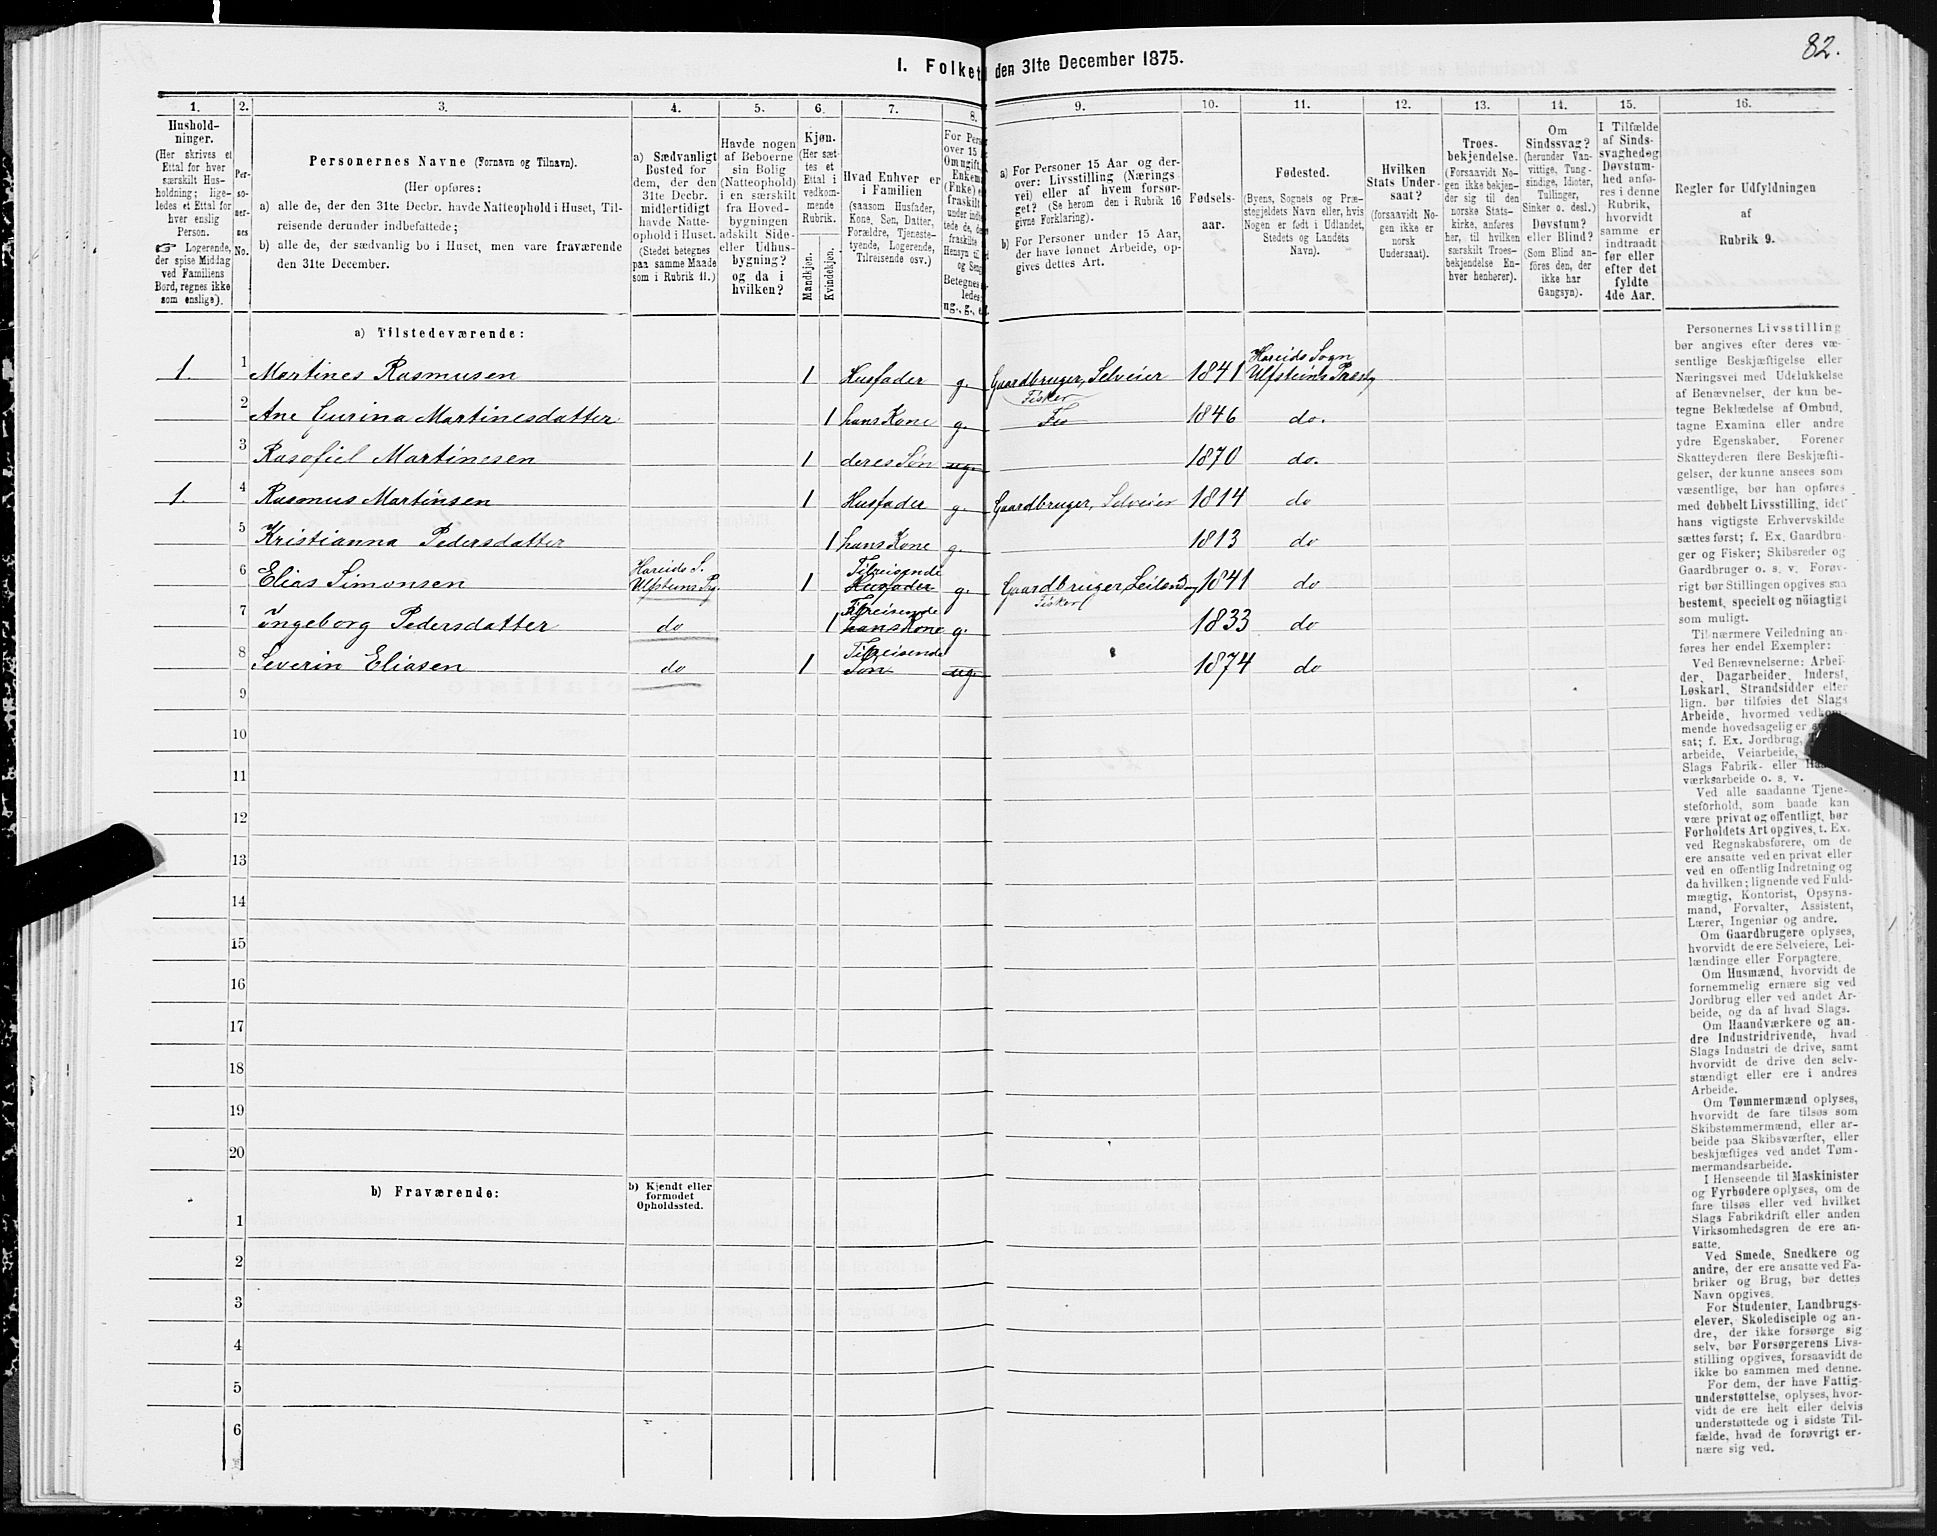 82.
I. Folket den 31te December 1875.
1. 2. 3. 4. 5. 6. 7. 8. 9. 10. 11. 12. 13. 14. 15. 16.
Hushold-
ninger.
(Her skrives et
Ettal for hver
særskilt Hus-
holdning; lige-
ledes et Ettal for
hver enslig
Person.
☞ Logerende,
der spise Middag
ved Familiens
Bord, regnes ikke
som enslige).
Per-
so-
ner-
nes
No.
Personernes Navne (Fornavn og Tilnavn).
(Her opføres:
a) alle de, der den 31te Decbr. havde Natteophold i Huset, Til-
reisende derunder indbefattede;
b) alle de, der sædvanlig bo i Huset, men vare fraværende
den 31te December.
a) Sædvanligt
Bosted for
dem, der den
31te Decbr.
midlertidigt
havde Natte-
ophold i Huset.
(Stedet betegnes
paa samme Maade
som i Rubrik 11.)
Havde nogen
af Beboerne
sin Bolig
(Natteophold)
i en særskilt
fra Hoved-
bygningen
adskilt Side-
eller Udhus-
bygning?
og da i
hvilken?
Kjøn.
(Her sæt-
tes et
Ettal i
vedkom-
mende
Rubrik.
Mandkjøn.
Kvindekjøn.
Hvad Enhver er
i Familien
(saasom Husfader,
Kone, Søn, Datter,
Forældre, Tjeneste-
tyende, Logerende,
Tilreisende osv.)
For Pers
over 15
Om ugift,
Enkem
(Fnke) e
fraskilt
under indb
tede de, d
fraskilte
Hensyn til
og Seng
Betegnes
ledes:
ug., g., e
a) For Personer 15 Aar og der-
over: Livsstilling (Nærings
vei) eller af hvem forsør-
get? (Se herom den i Rubrik 16
givne Forklaring).
b) For Personer under 15 Aar,
der have lønnet Arbeide, op-
gives dettes Art.
Fødsels-
aar.
Fødested.
(Byens, Sognets og Præ-
stegjeldets Navn eller, hvis
Nogen er født i Udlandet,
Stedets og Landets
Navn).
Hvilken
Stats Under-
saat?
(forsaavidt No-
gen ikke er
norsk
Undersaat).
Troes-
bekjendelse.
(Forsaavidt No-
gen ikke bekjen-
der sig til den
norske Stats-
kirke, anføres
her, til hvilken
særskilt Troes-
bekjendelse En-
hver henhører).
Om
Sindssvag?
(herunder Van-
vittige, Tung-
sindige, Idioter,
Tullinger,
Sinker o. desl.)
Døvstum?
eller Blind?
(Som Blind an-
føres den, der
ikke har
Gangsyn).
I Tilfælde
af Sinds-
svaghed og
Døvstum-
hed anfø-
res i denne
Rubrik,
hvorvidt
samme er
indtraadt
før eller
efter det
fyldte
4de Aar.
Regler for Udfyldningen
af
Rubrik 9.
a) Tilstedeværende:
1. 1 Martines Rasmusen 1 Husfader g. Gaardbruger, Selveier Fisker 1841 Hareids Sogn Ulfsteins Præstg
2 Ane Gurina Martinesdatter 1 hans Kone g. 1846 do.
3 Rasofiel Martinesen 1 deres Søn ug. 1870 do.
1. 4 Rasmus Martinsen 1 Husfader g. Gaardbruger, Selveier 1814 do
5 Kristianna Pedersdatter 1 hans Kone g. 1813 do
6 Elias Simonsen Hareids S. Ulfsteins Pg. 1 Tilreisende Husfader g. Gaardbruger, Leilending Fisker 1841 do
7 Ingeborg Pedersdatter do 1 Tilreisende hans Kone g. 1833 do
8 Severin Eliasen do 1 Tilreisende Søn ug. 1874 do
9
10
11
12
13
14
15
16
17
18
19
20
b) Fraværende:
b) Kjendt eller
formodet
Opholdssted.
1
2
3
4
5
6
Personernes Livsstilling
bør angives efter deres væ-
sentlige Beskjæftigelse eller
Næringsvei med Udelukkelse
af Benævnelser, der kun be-
tegne Beklædelse af Ombud,
tagne Examina eller andre
ydre Egenskaber. Forener
Skatteyderen flere Beskjæfti-
gelser, der kunne ansees som
væsentlige, bør han opføres
med dobbelt Livsstilling, idet
hans vigtigste Erhvervskilde
sættes først; f. Ex. Gaardbru-
ger og Fisker; Skibsreder og
Gaardbruger o. s. v. Forøv-
rigt bør Stillingen opgives saa
bestemt, specielt og nøiagtigt
som muligt.
Til nærmere Veiledning an-
føres her endel Exempler:
Ved Benævnelserne: Arbei-
der, Dagarbeider, Inderst,
Løskarl, Strandsidder eller
lign. bør tilføies det Slags
Arbeide, hvormed vedkom-
mende hovedsagelig er
sat; f. Ex. Jordbrug,
arbeide, Veiarbeide,
Slags Fabrik- eller
værksarbeide o. s. v.
Ved alle saadanne Tjene-
steforhold, som baade kan
være privat og offentligt, bør
Forholdets Art opgives, t. Ex.
ved Regnskabsførere, om de
ere ansatte ved en privat eller
ved en offentlig Indretning og
da hvilken; lignende ved Fuld-
mægtig, Kontorist, Opsyns-
mand, Forvalter, Assistent,
Lærer, Ingeniør og andre.
Om Gaardbrugere oplyses,
hvorvidt de ere Selveiere, Lei-
lændinge eller Forpagtere.
Om Husmænd, hvorvidt de
fornemmelig ernære sig ved
Jordbrug eller ved andet Ar-
beide, og da af hvad Slags.
Om Haandværkere og an-
dre Industridrivende, hvad
Slags Industri de drive, samt
hvorvidt de drive den selv-
stændigt eller ere i andres
Arbeide.
Om Tømmermænd oplyses,
hvorvidt de fare tilsøs som
Skibstømmermænd, eller ar-
beide paa Skibsværfter, eller
beskjæftiges ved andet Tøm-
mermandsarbeide.
I Henseende til Maskinister
og Fyrbødere oplyses, om de
fare tilsøs eller ved hvilket
Slags Fabrikdrift eller anden
Virksomhedsgren de ere an-
satte.
Ved Smede, Snedkere og
andre, der ere ansatte ved Fa-
briker og Brug, bør dettes
Navn opgives.
For Studenter, Landbrugs-
elever, Skoledisciple og an-
dre, der ikke forsørge sig
selv, bør Forsørgerens Livs-
stilling opgives, forsaavidt de
ikke bo sammen med denne.
For dem, der have Fattig-
understøttelse, oplyses, hvor-
vidt de ere helt eller delvis
understøttede og i sidste Til-
fælde, hvad de forøvrigt er-
nære sig ved.